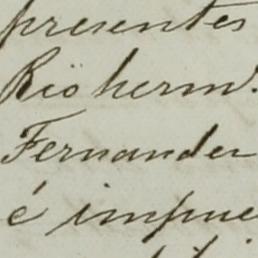 presentes
Rio herm.
Fernander
é impue